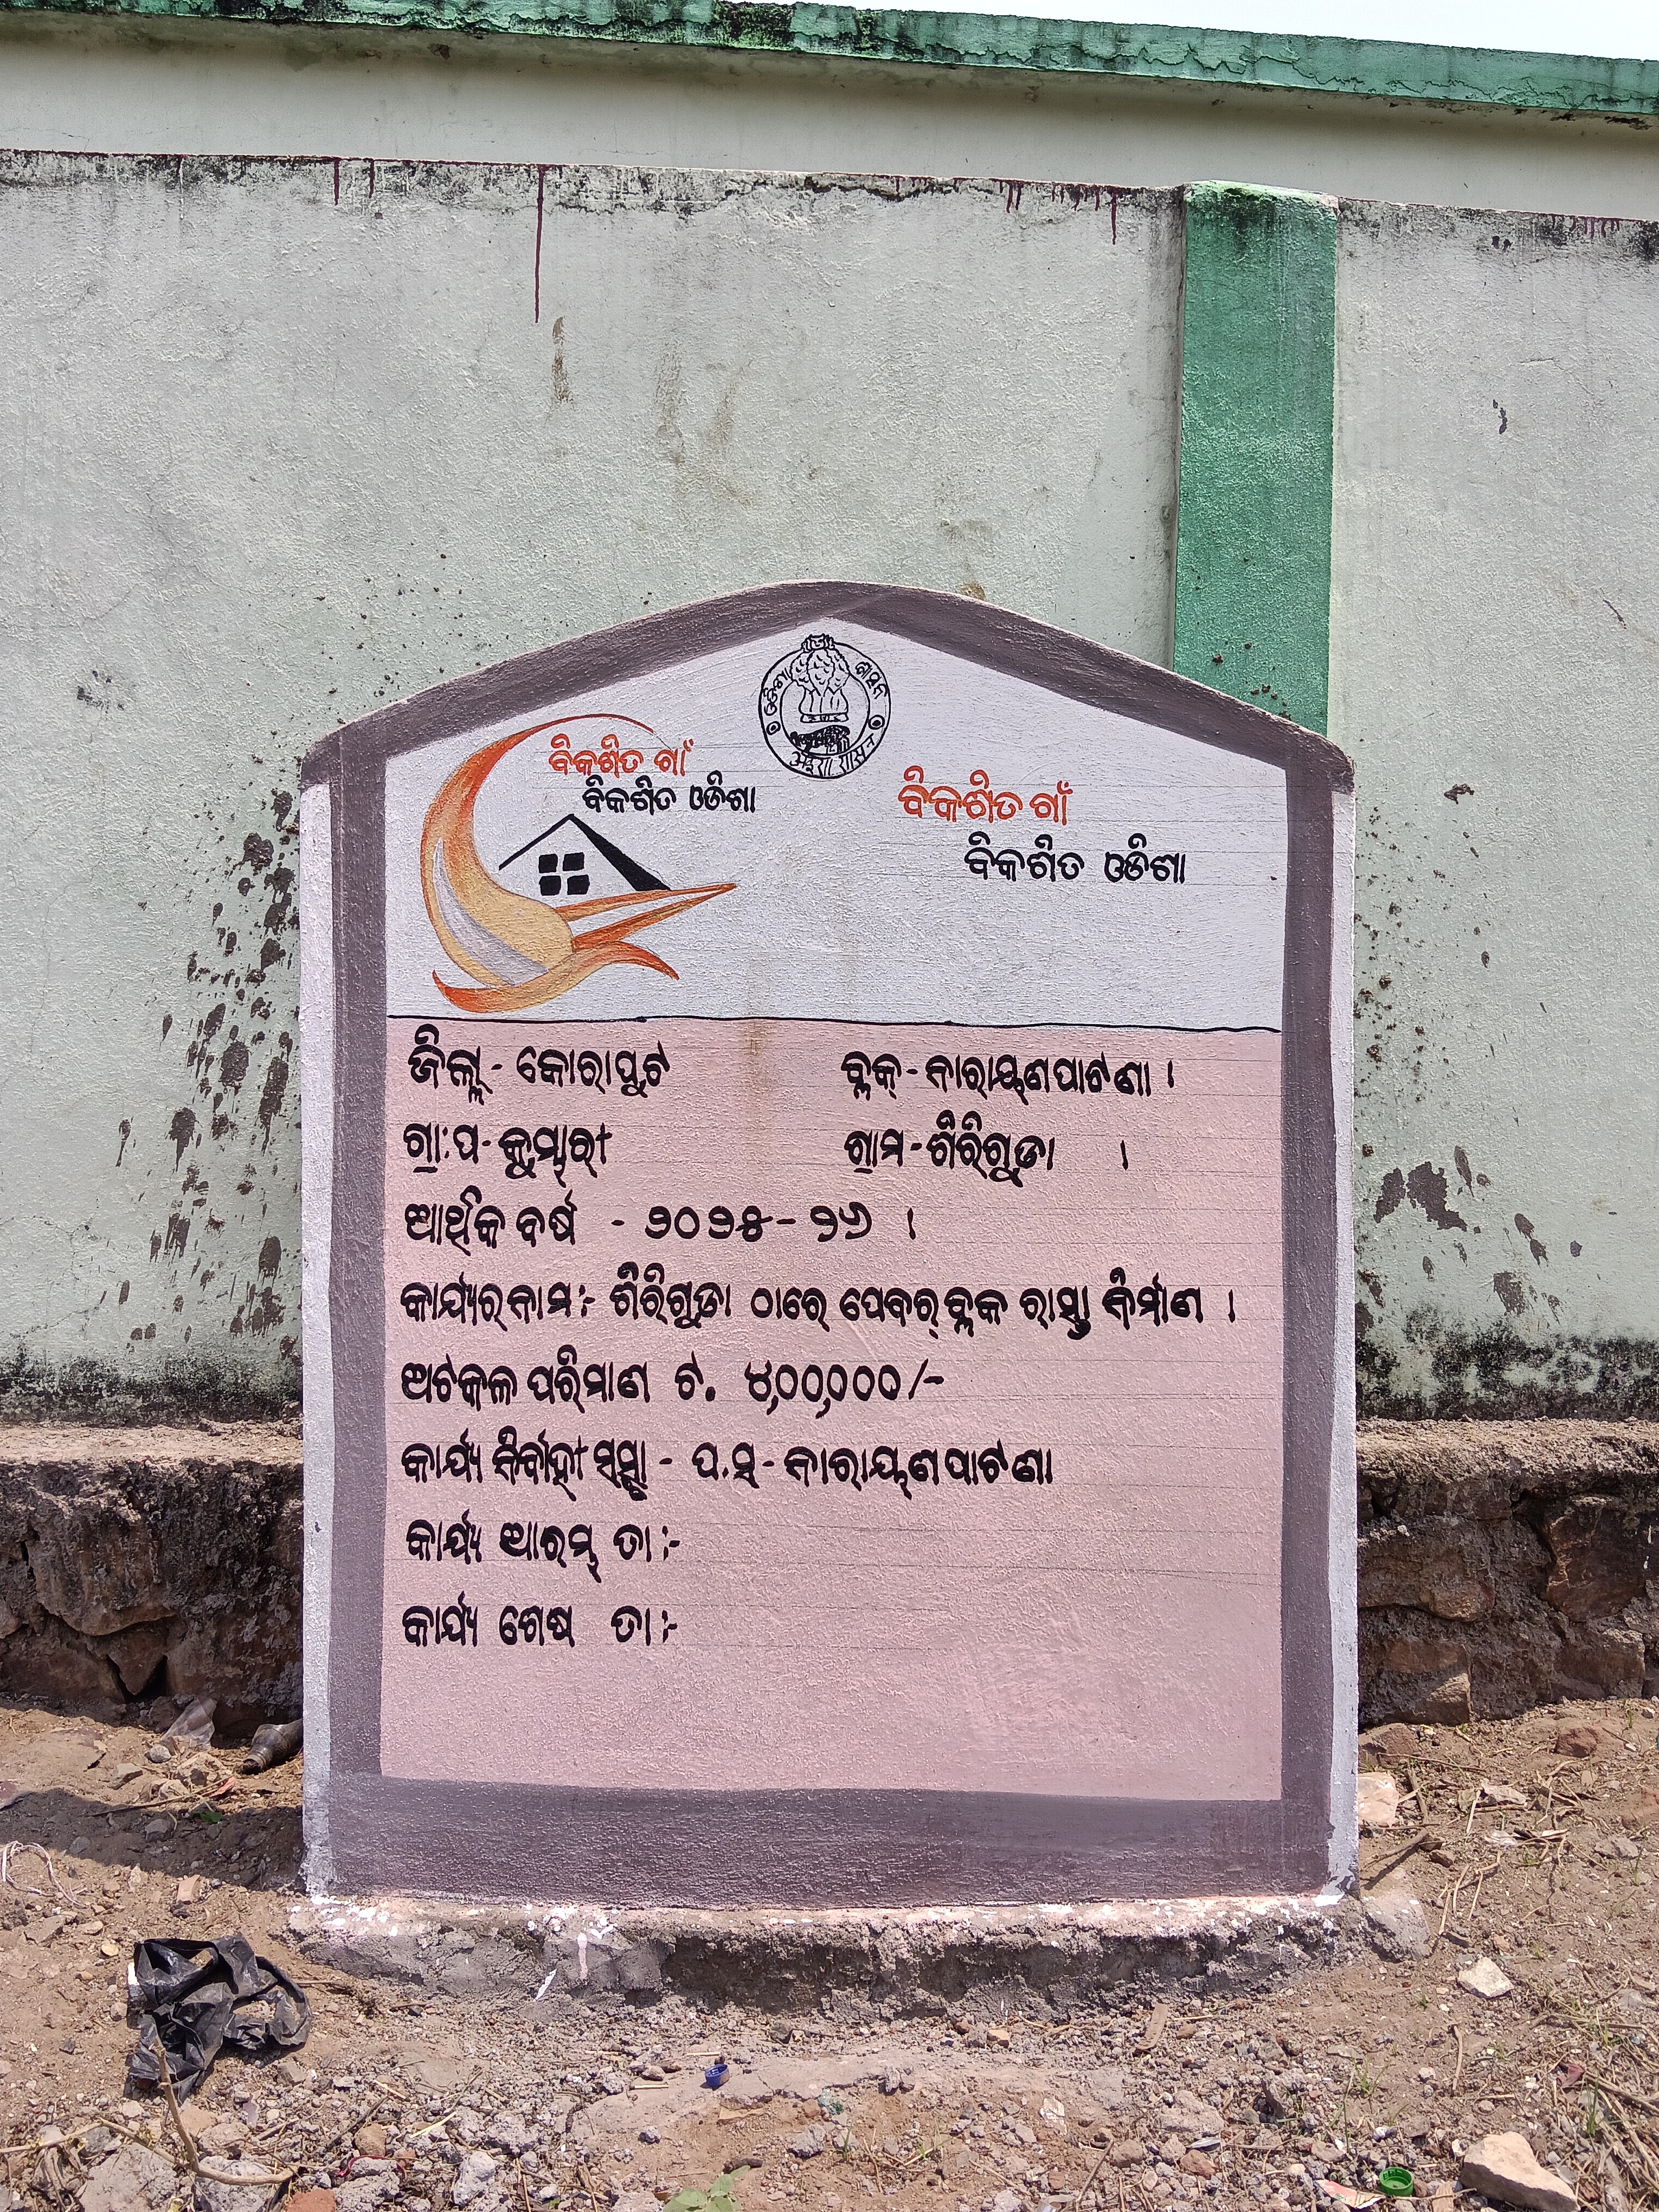 ଓଡିଶା ଶାସନ
ବିକଶିତ ଗାଁ
ବିକଶିତ ଓଡିଶା
ବିକଶିତ ଗାଁ
ବିକଶିତ ଓଡିଶା
ଜିଲ୍ଲା - କୋରାପୁଟ ବ୍ଲକ୍ - ନାରାୟଣପାଟଣା ।
ଗ୍ରା:ପ - କୁମ୍ଭାରୀ ଗ୍ରାମ - ଶିରିଗୁଡା ।
ଆର୍ଥିକ ବର୍ଷ - ୨୦୨୫ - ୨୬ ।
କାର୍ଯ୍ୟର ନାମ :- ଶିରିଗୁଡା ଠାରେ ପେବର୍ ବ୍ଲକ ରାସ୍ତା ନିର୍ମାଣ ।
ଅଟକଳ ପରିମାଣ ଟ. ୪,୦୦,୦୦୦/-
କାର୍ଯ୍ୟ ନିର୍ବାହୀ ସସ୍ଥା - ପ.ସ - ନାରାୟଣପାଟଣା
କାର୍ଯ୍ୟ ଆରମ୍ଭ ତା :-
କାର୍ଯ୍ୟ ଶେଷ ତା :-